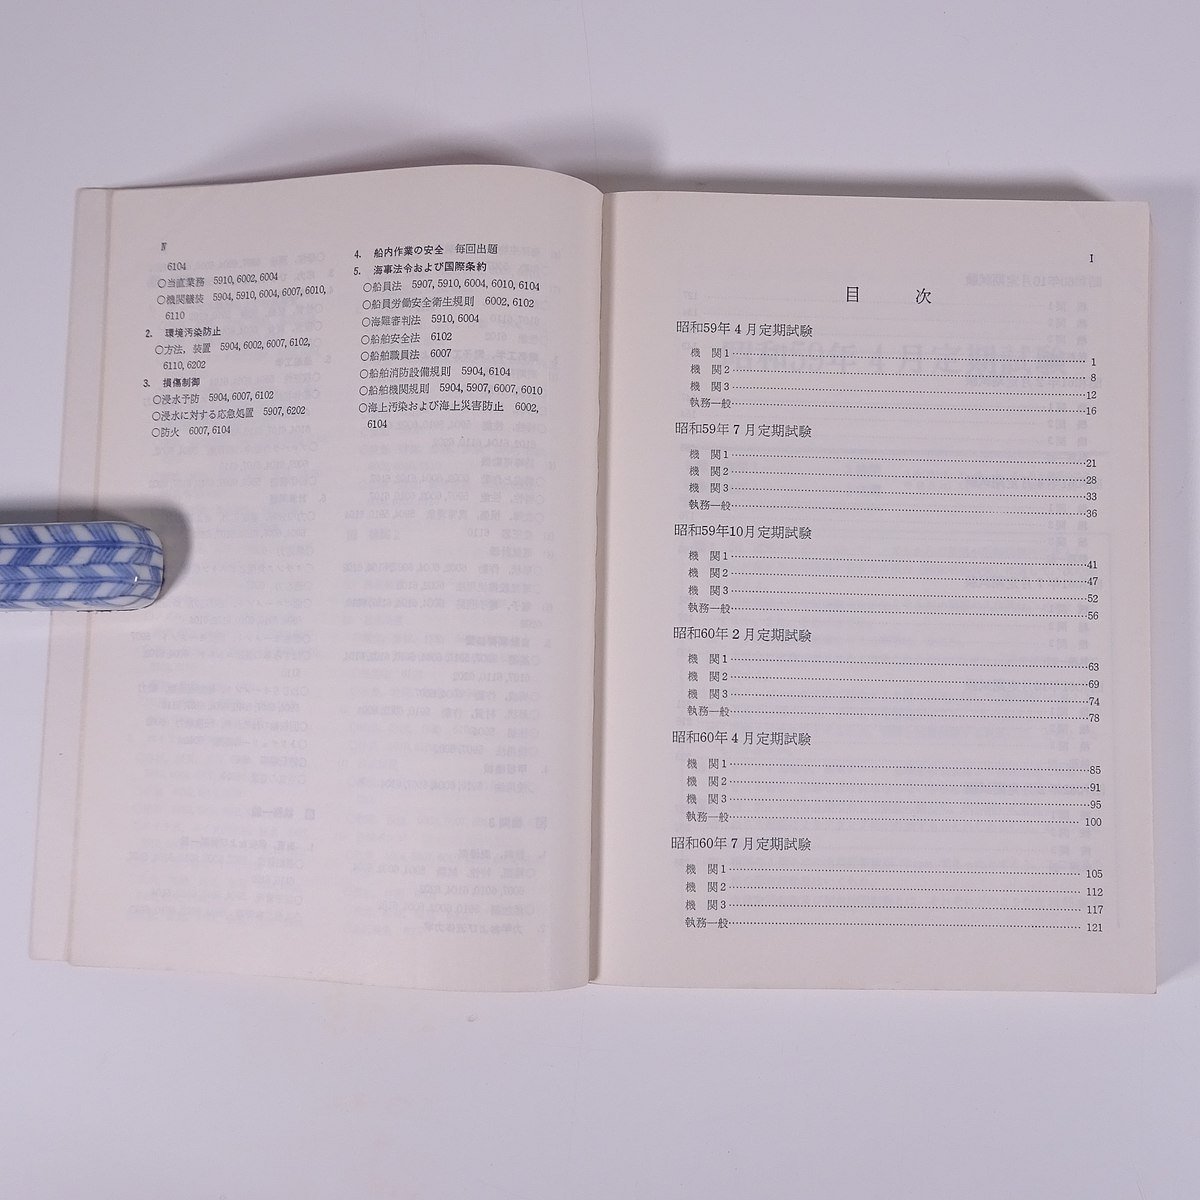 Ⅳ
6104
○当直業務 5910, 6002, 6004
○機関艤装 5904, 5910, 6004, 6007, 6010,
6110
2. 環境汚染防止
○方法，装置 5904, 6002, 6007, 6102,
6110, 6202
3. 損傷制御
○浸水予防 5904, 6007, 6102
○浸水に対する応急処置 5907, 6202
○防火 6007, 6104
4. 船内作業の安全 毎回出題
5. 海事法令および国際条約
○船員法 5907, 5910, 6004, 6010, 6104
○船員労働安全衛生規則 6002, 6102
○海難審判法 5910, 6004
○船舶安全法 6102
○船舶職員法 6007
○船舶消防設備規則 5904, 6104
○船舶機関規則 5904, 5907, 6007, 6010
○海上汚染および海上災害防止 6002,
6104
Ⅰ
目 次
昭和59年4月定期試験
機 関1 1
機 関2 8
機 関3 12
執務一般 16
昭和59年7月定期試験
機 関1 21
機 関2 28
機 関3 33
執務一般 36
昭和59年10月定期試験
機 関1 41
機 関2 47
機 関3 52
執務一般 56
昭和60年2月定期試験
機 関1 63
機 関2 69
機 関3 74
執務一般 78
昭和60年4月定期試験
機 関1 85
機 関2 91
機 関3 95
執務一般 100
昭和60年7月定期試験
機 関1 105
機 関2 112
機 関3 117
執務一般 121